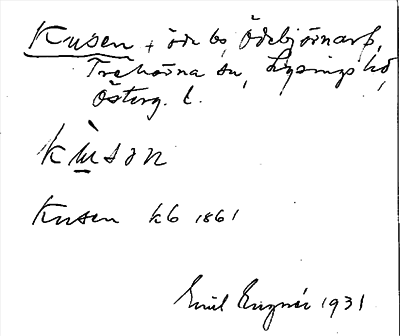 Kusen + öde bs, Ödebjörnarp,
Trehörna sn, Lysings hd,
Österg. l.
kùson
Kusen kb 1861
Emil Engnér 1931